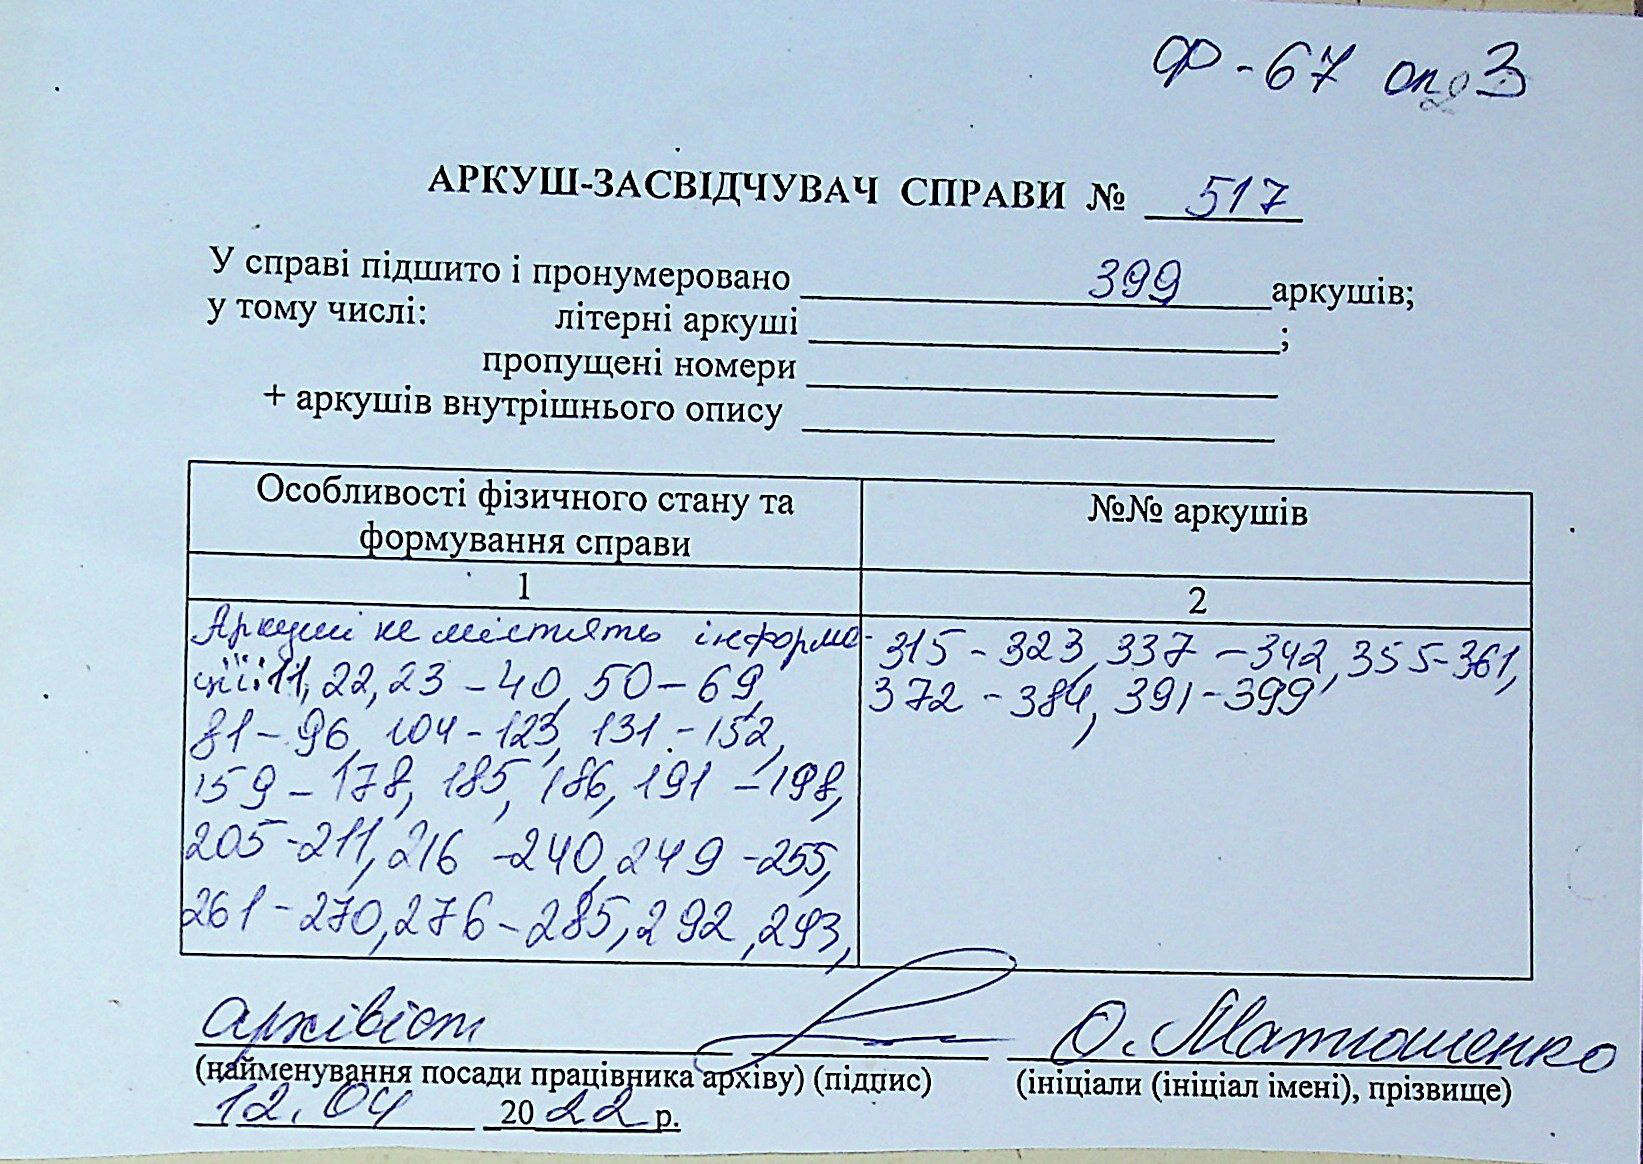 Ф-67 оп 3
АРКУШ-ЗАСВІДЧУВАЧ СПРАВИ № 517
У справі підшито і пронумеровано 399 аркушів;
у тому числі: літерні аркуші ;
пропущені номери
+ аркушів внутрішнього опису
Особливості фізичного стану та формування справи
№№ аркушів
1
2
Аркуші не містять інформа-
ції: 11, 22, 23 – 40, 50 – 69,
81 – 96, 104 - 123, 131 - 152,
159 – 178, 185, 186, 191 – 198,
205 - 211, 216 - 240, 249 - 255,
261 - 270, 276 – 285, 292, 293,
315 - 323, 337 – 342, 355-361,
372 - 384, 391 - 399
архівіст О. Матюшенко
(найменування посади працівника архіву) (підпис) (ініціали (ініціал імені), прізвище)
12.04 2022 р.